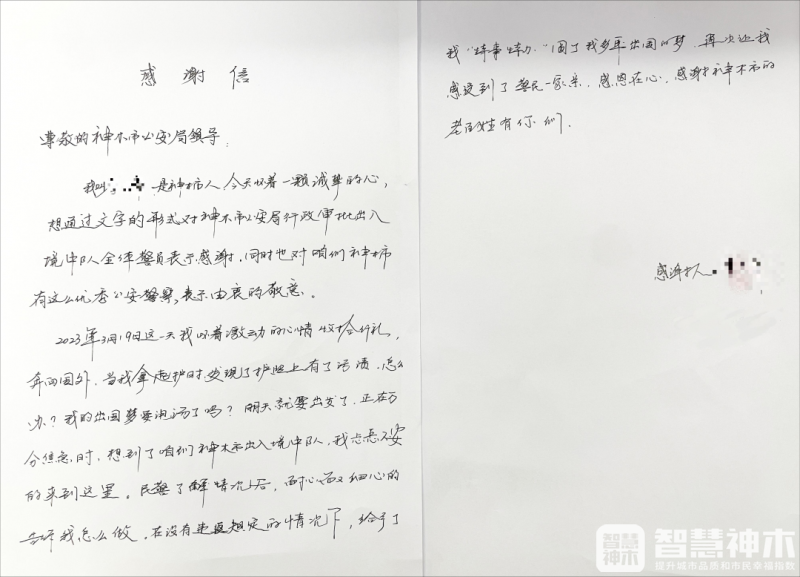 感谢信
尊敬的神木市公安局领导:
我叫 是神木市人,今天怀着一颗诚挚的心,
想通过文字的形式对神木市公安局行政审批出入
境中队全体警员表示感谢,同时也对咱们神木市
有这么优秀公安警察,表示由衷的敬意。
2023年3月19日这一天我怀着激动的心情收拾行礼,
奔向国外,当我拿起护时发现了护照上有了污渍,怎么
办?我的出国梦要泡汤了吗?明天就要出发了,正在万
分焦急时,想到了咱们神木市出入境中队,我忐忑不安
的来到这里。民警了解情况后,西心又细心的
告诉我怎么做,在没有违规定的情况下,给予了
我“特事特办”圆了我多年出国的梦,再次让我
感受到了警民一家亲,感恩在心,感谢神木市的
老百姓有你们。
感谢人:
智慧神木
智慧神木
提升城市品质和市民幸福指数